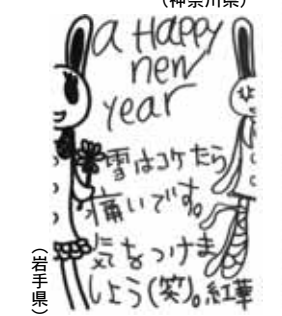 (神奈川県)
a Happy
new
year
雪はコケたら
痛いです。
気をつけま
しょう(笑)。紅華
(岩手県)